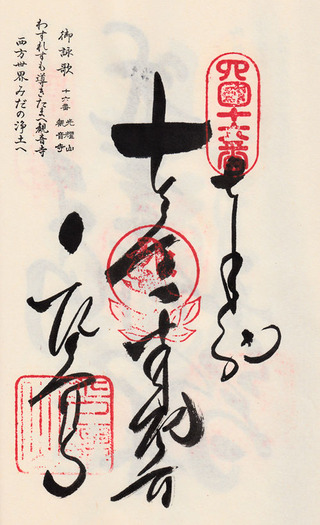 四國十六番
奉納
千手観音
観音寺
御詠歌 十六番 光耀山
観音寺
わすれずも導きたまへ観音寺
西方世界みだの浄土へ